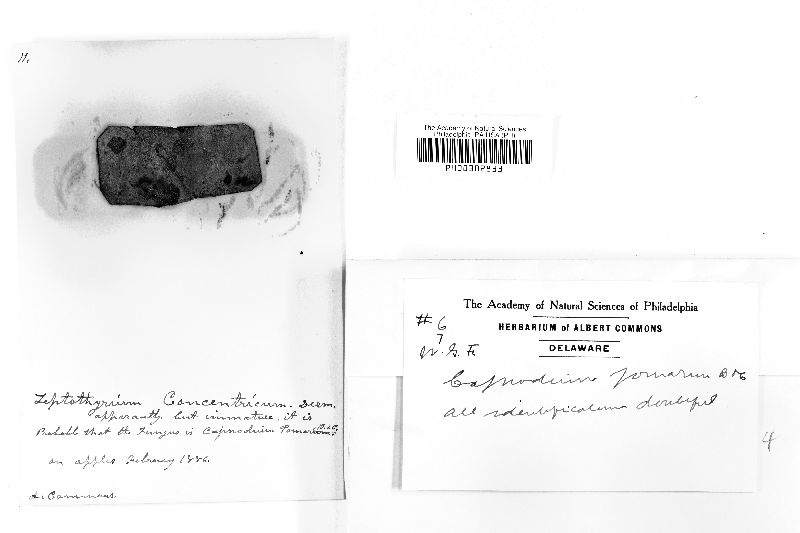 11.
Leptothyrium Concentricum.
apparantly, but immature. it is
that the Fungus is Capnodium Pomarum
on apples February 1886.
A. Commons
The Academy of Natural Sciences
Philadelphia
The Academy of Natural Sciences of Philadelphia
HERBARIUM of ALBERT COMMONS
DELAWARE
# 6
7
Capnodium pomarum B & C
all identifications doubtful
4